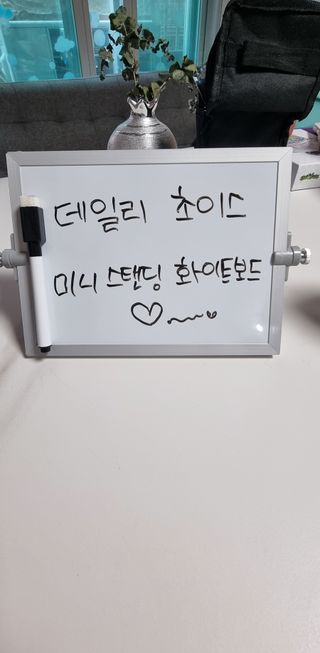 데일리 초이스
미니 스탠딩 화이트보드
♡